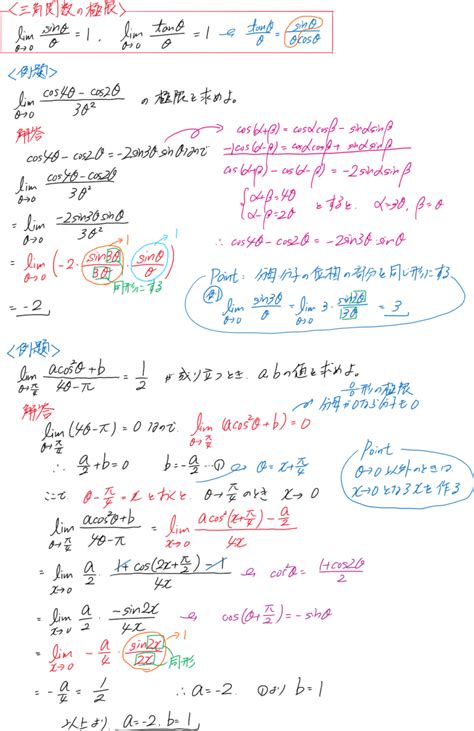 〈三角関数の極限〉
lim θ→0 sinθ/θ = 1, lim θ→0 tanθ/θ = 1 tanθ/θ = sinθ/θcosθ
〈例題〉
lim θ→0 (cos4θ-cos2θ)/3θ² の極限を求めよ。
解答
cos4θ-cos2θ=-2sin3θ sinθなので
cos(α+β)=cosαcosβ-sinαsinβ
-)cos(α-β)=cosαcosβ+sinαsinβ
cos(α+β)-cos(α-β)=-2sinαsinβ
lim θ→0 (cos4θ-cos2θ)/3θ²
{α+β=4θ α-β=2θ とすると、α=3θ, β=θ
= lim θ→0 (-2sin3θsinθ)/3θ²
∴ cos4θ-cos2θ=-2sin3θ sinθ
= lim θ→0 (-2・sin3θ/3θ・sinθ/θ) 1 1
同形にする
= -2
Point: 分母分子の位相の部分を同じ形にする
例 lim θ→0 sin3θ/θ = lim θ→0 3・sin3θ/3θ = 3
〈例題〉
lim θ→π/4 (acos²θ+b)/(4θ-π) = 1/2 が成り立つとき、a,bの値を求めよ。
解答
0/0形の極限
分母が0なら分子も0
lim θ→π/4 (4θ-π)=0 なので lim θ→π/4 (acos²θ+b)=0
∴ a/2+b=0 b=-a/2…①
θ=x+π/4
Point
θ→0以外のときは
x→0となるxを作る
ここで θ-π/4=x とおくと、θ→π/4のとき x→0
lim θ→π/4 (acos²θ+b)/(4θ-π) = lim x→0 (acos²(x+π/4)-a/2)/4x
= lim x→0 a/2・(1+cos(2x+π/2)-1)/4x cos²θ=(1+cos2θ)/2
= lim x→0 a/2・(-sin2x)/4x cos(θ+π/2)=-sinθ
= lim x→0 -a/4・sin2x/2x 1 同形
= -a/4 = 1/2 ∴ a=-2. ①より b=1
以上より、a=-2, b=1